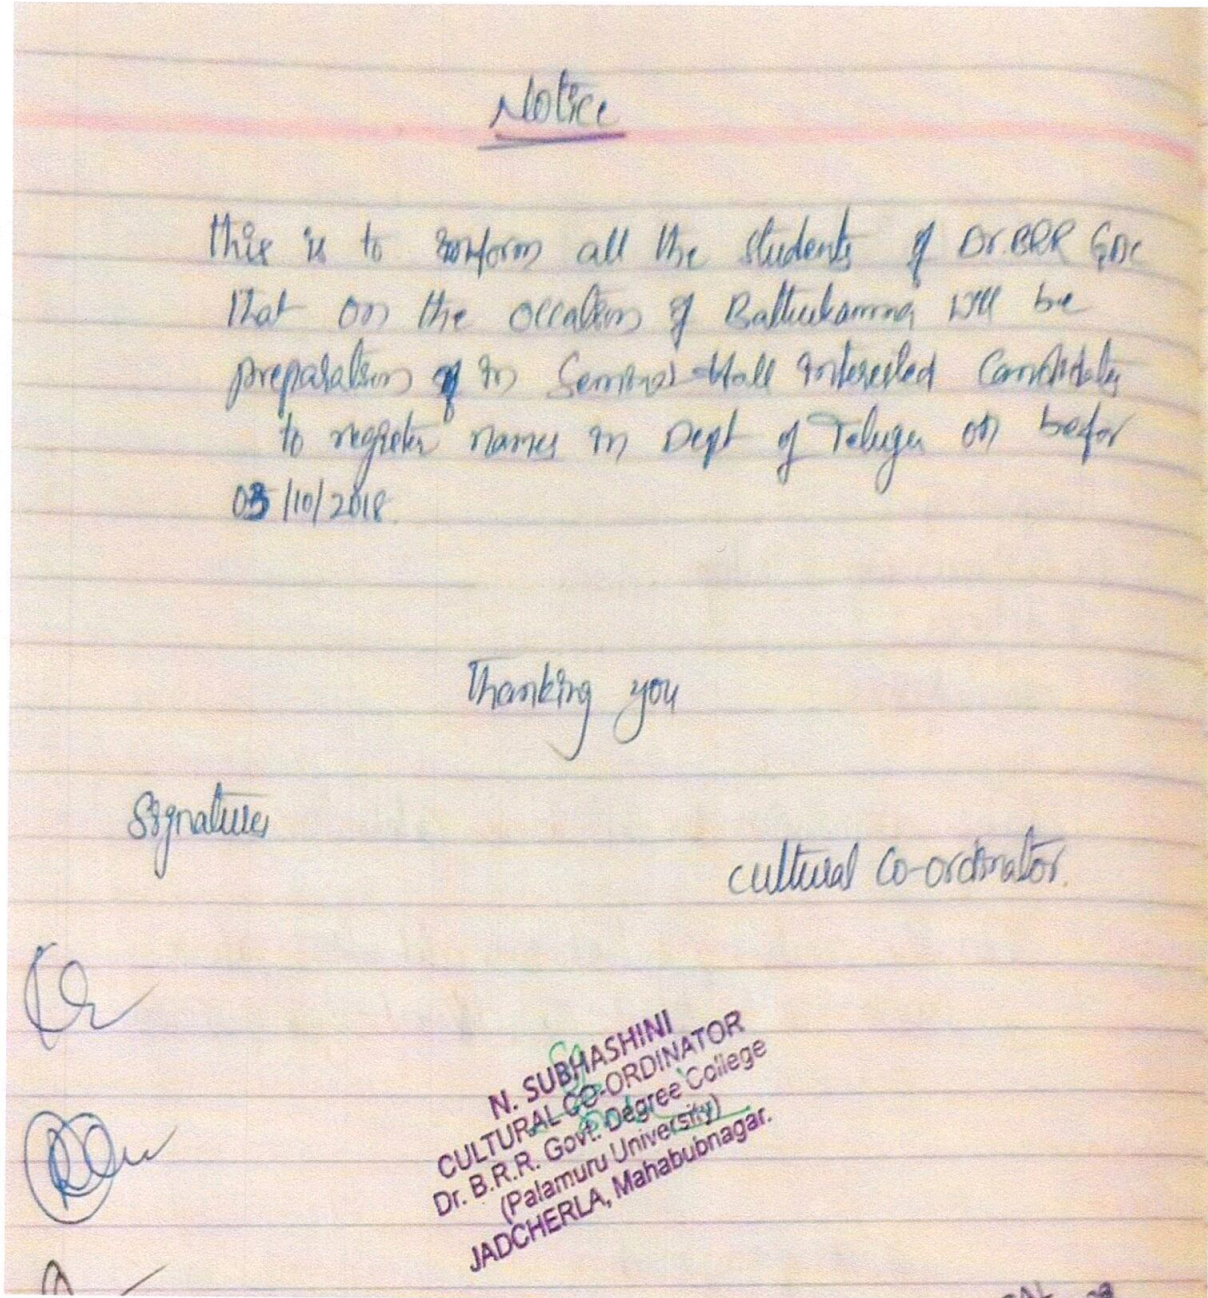 Notice
this is to inform all the students of Dr.BRR GDC
that on the occation of Bathukamma will be
preparation in Seminar Hall interested Candidates
to register names in Dept of Telugu on befor
03/10/2018.
Thanking you
Signatures
cultural Co-ordinator.
N. SUBHASHINI
CULTURAL CO-ORDINATOR
Dr. B.R.R. Govt. Degree College
(Palamuru University)
JADCHERLA, Mahabubnagar.